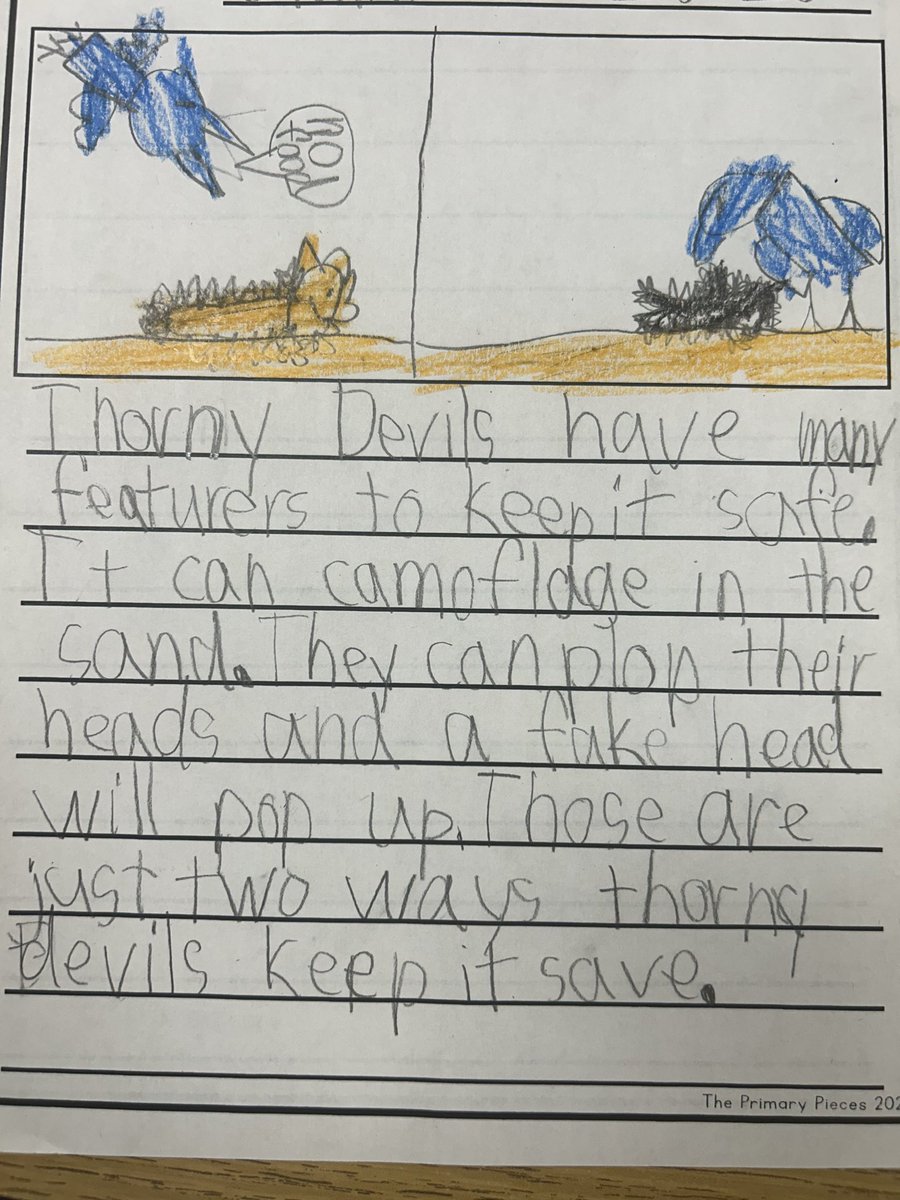 not
food
Thorny Devils have many
featurers to keep it safe.
It can camofldge in the
sand. They can plop their
heads and a fake head
will pop up. Those are
just two ways thorny
devils keep it save.
The Primary Pieces 202